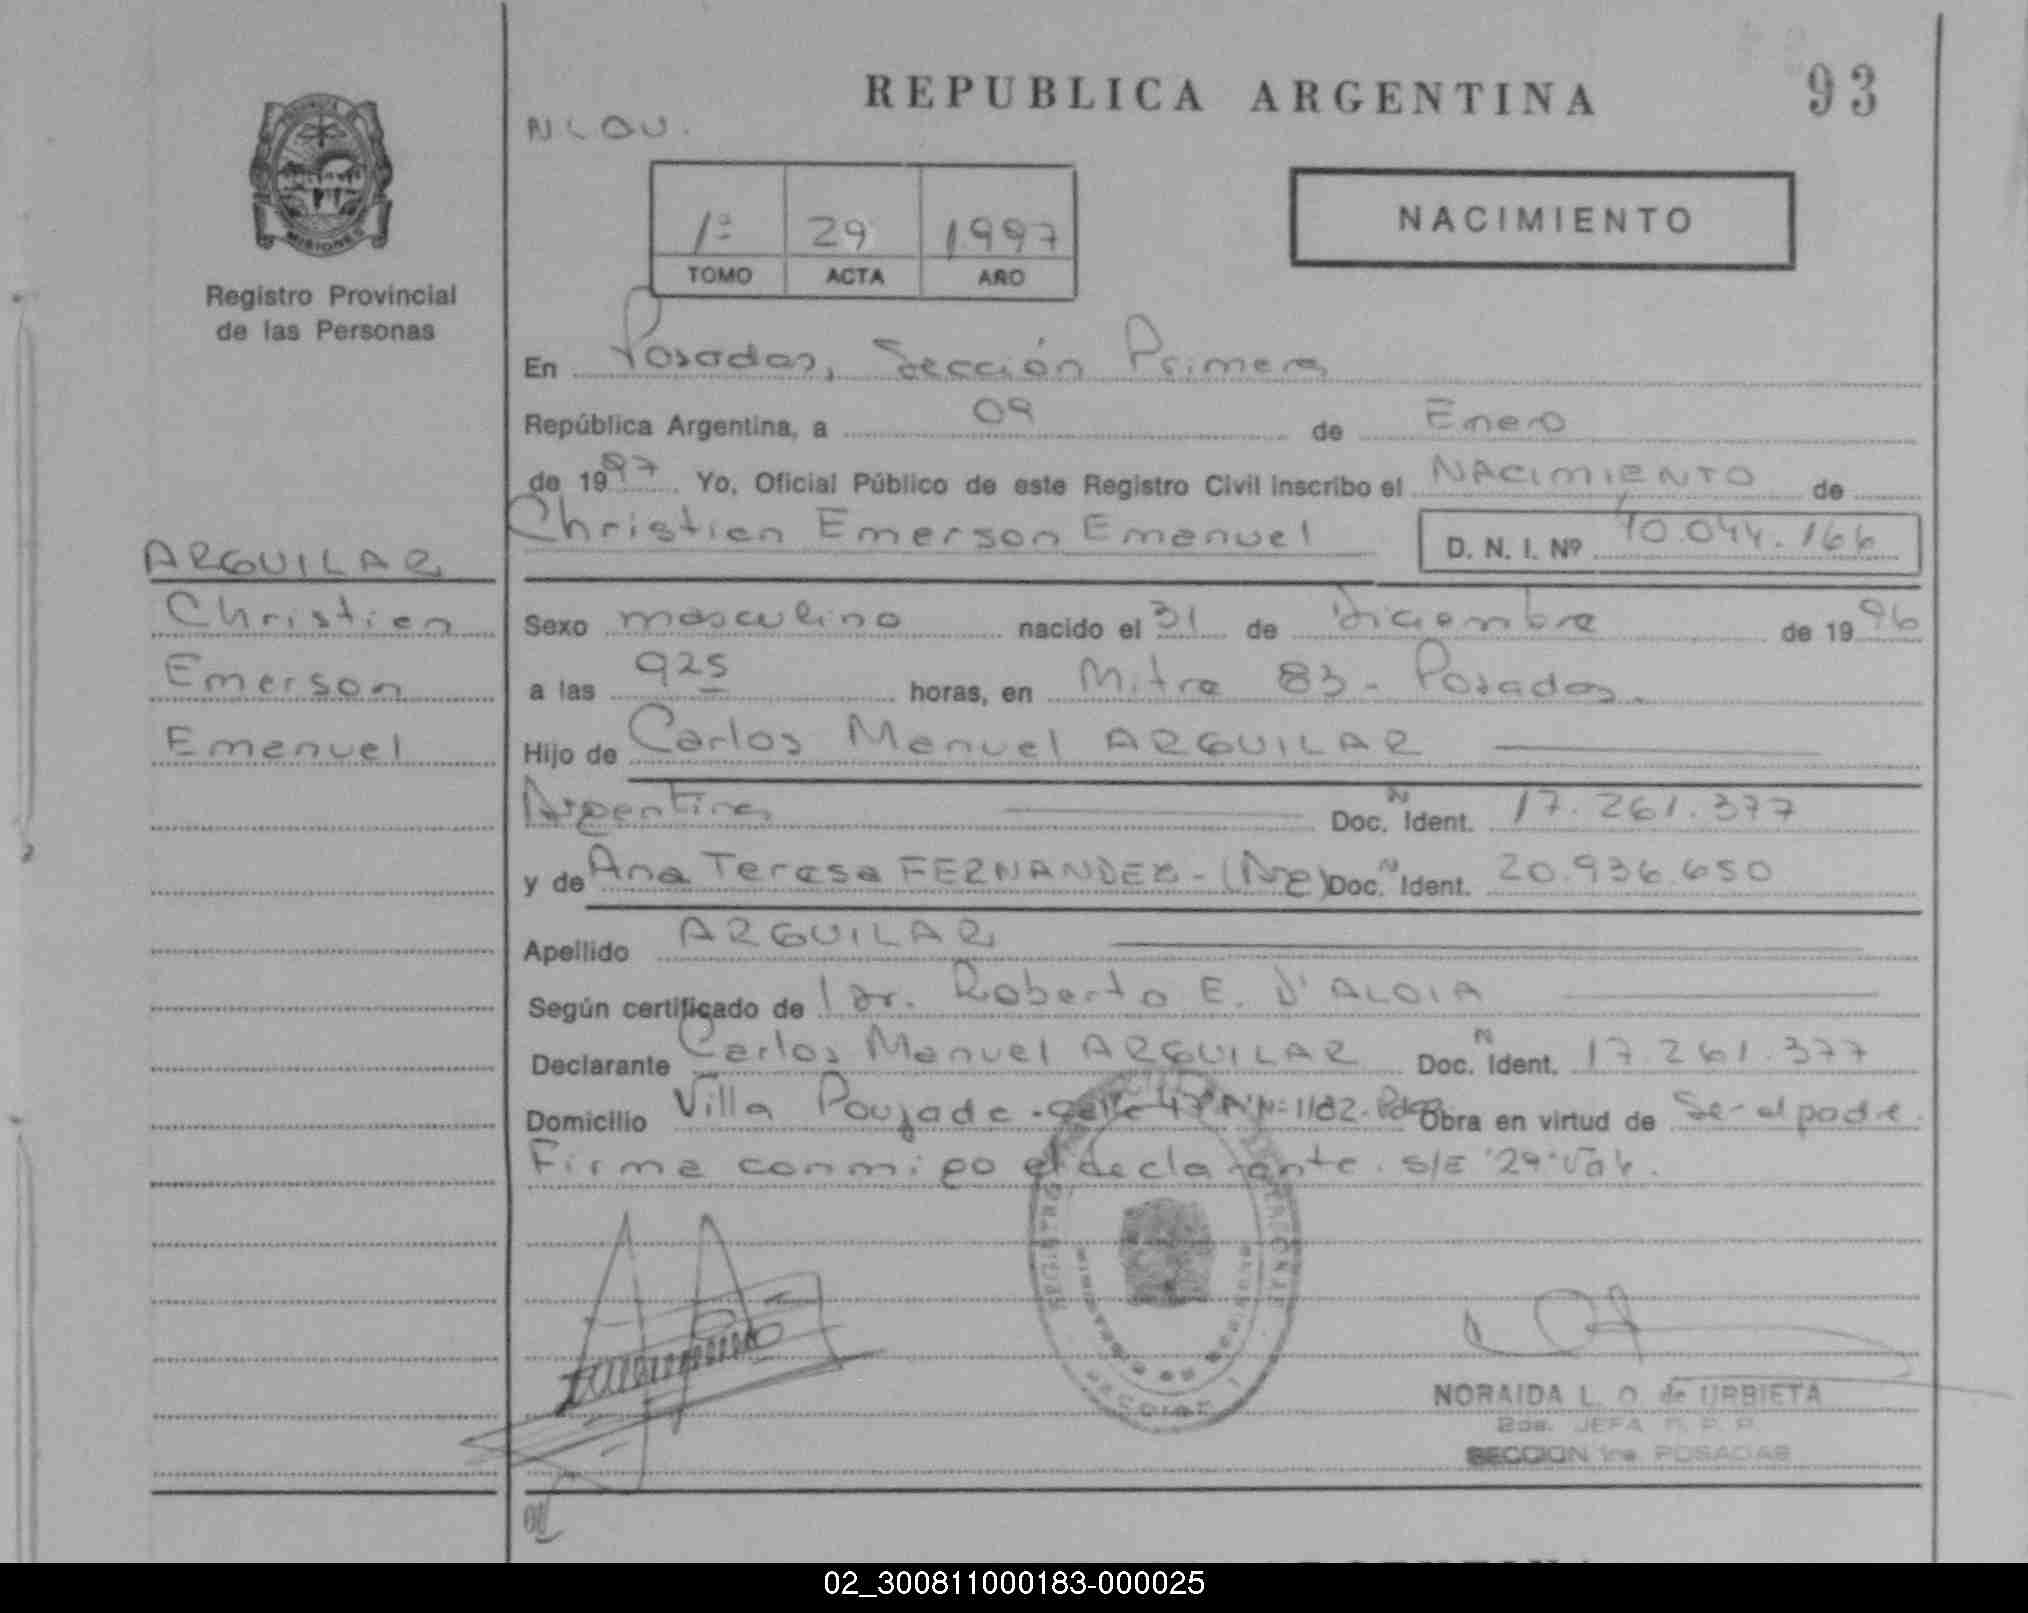 REPUBLICA ARGENTINA
93
NLOU.
1ª 29 1997
TOMO ACTA AÑO
NACIMIENTO
MISIONES
Registro Provincial
de las Personas
En Posadas, Sección Primera
República Argentina, a 09 de Enero
de 1997 Yo, Oficial Público de este Registro Civil inscribo el NACIMIENTO de
Christian Emerson Emanuel D. N. I. Nº 40.044.166
ARGUILAR
Christian
Emerson
Emanuel
Sexo masculino nacido el 31 de diciembre de 1996
a las 925 horas, en Mitre 83 - Posadas.
Hijo de Carlos Manuel ARGUILAR
Argentina Doc. N Ident. 17.261.377
y de Ana Teresa FERNANDEZ - (Arg) Doc. N Ident. 20.936.650
Apellido ARGUILAR
Según certificado de Dr. Roberto E. D'ALOIA
Declarante Carlos Manuel ARGUILAR Doc. N Ident. 17.261.377
Domicilio Villa Poujade - calle Nº 1182. Pdas Obra en virtud de Ser el padre.
Firma conmigo el declarante. S/E "29" Vale.
NORAIDA L. O. de URBIETA
2da. JEFA R. P. P.
SECCION 1ra. POSADAS
02_300811000183-000025